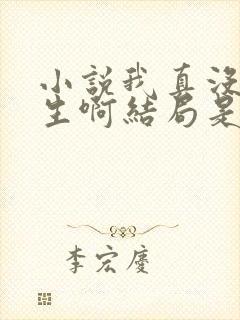 小說我真沒
生啊結局是
李宏慶